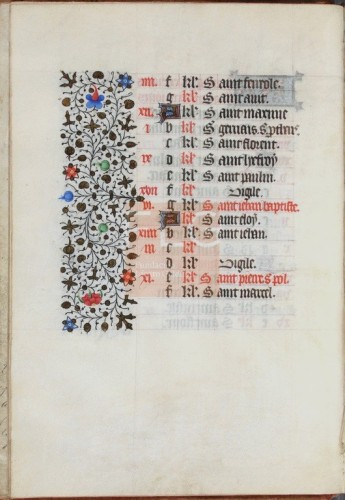 iiii. f kl' Saint ferrole.
g kl' Saint auit.
xii. A kl' Saint maxime
i b kl' S geruais. s. prothais
c kl' Saint florent.
ix d kl' Saint
e kl' Saint paulin.
xvii f kl' Vigile.
vi. g kl' Saint iehan baptiste.
A kl' Saint eloy.
xiiii b kl' Saint iehan.
iii c kl'
d kl' Vigile.
xi. e kl' Saint pierre s. pol.
f kl' Saint marcel.